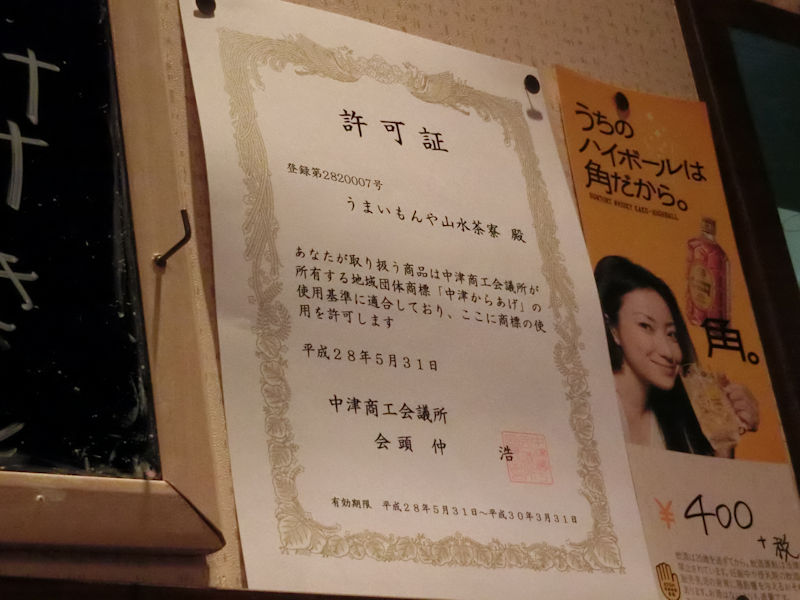 許可証
登録第2820007号
うまいもんや山水茶寮 殿
あなたが取り扱う商品は中津商工会議所が
所有する地域団体商標「中津からあげ」の
使用基準に適合しており、ここに商標の使
用を許可します
平成28年5月31日
中津商工会議所
会頭 仲 浩
有効期限 平成28年5月31日〜平成30年3月31日
うちの
ハイボールは
角だから。
SUNTORY WHISKY KAKU-HIGHBALL
角。
¥400
+税